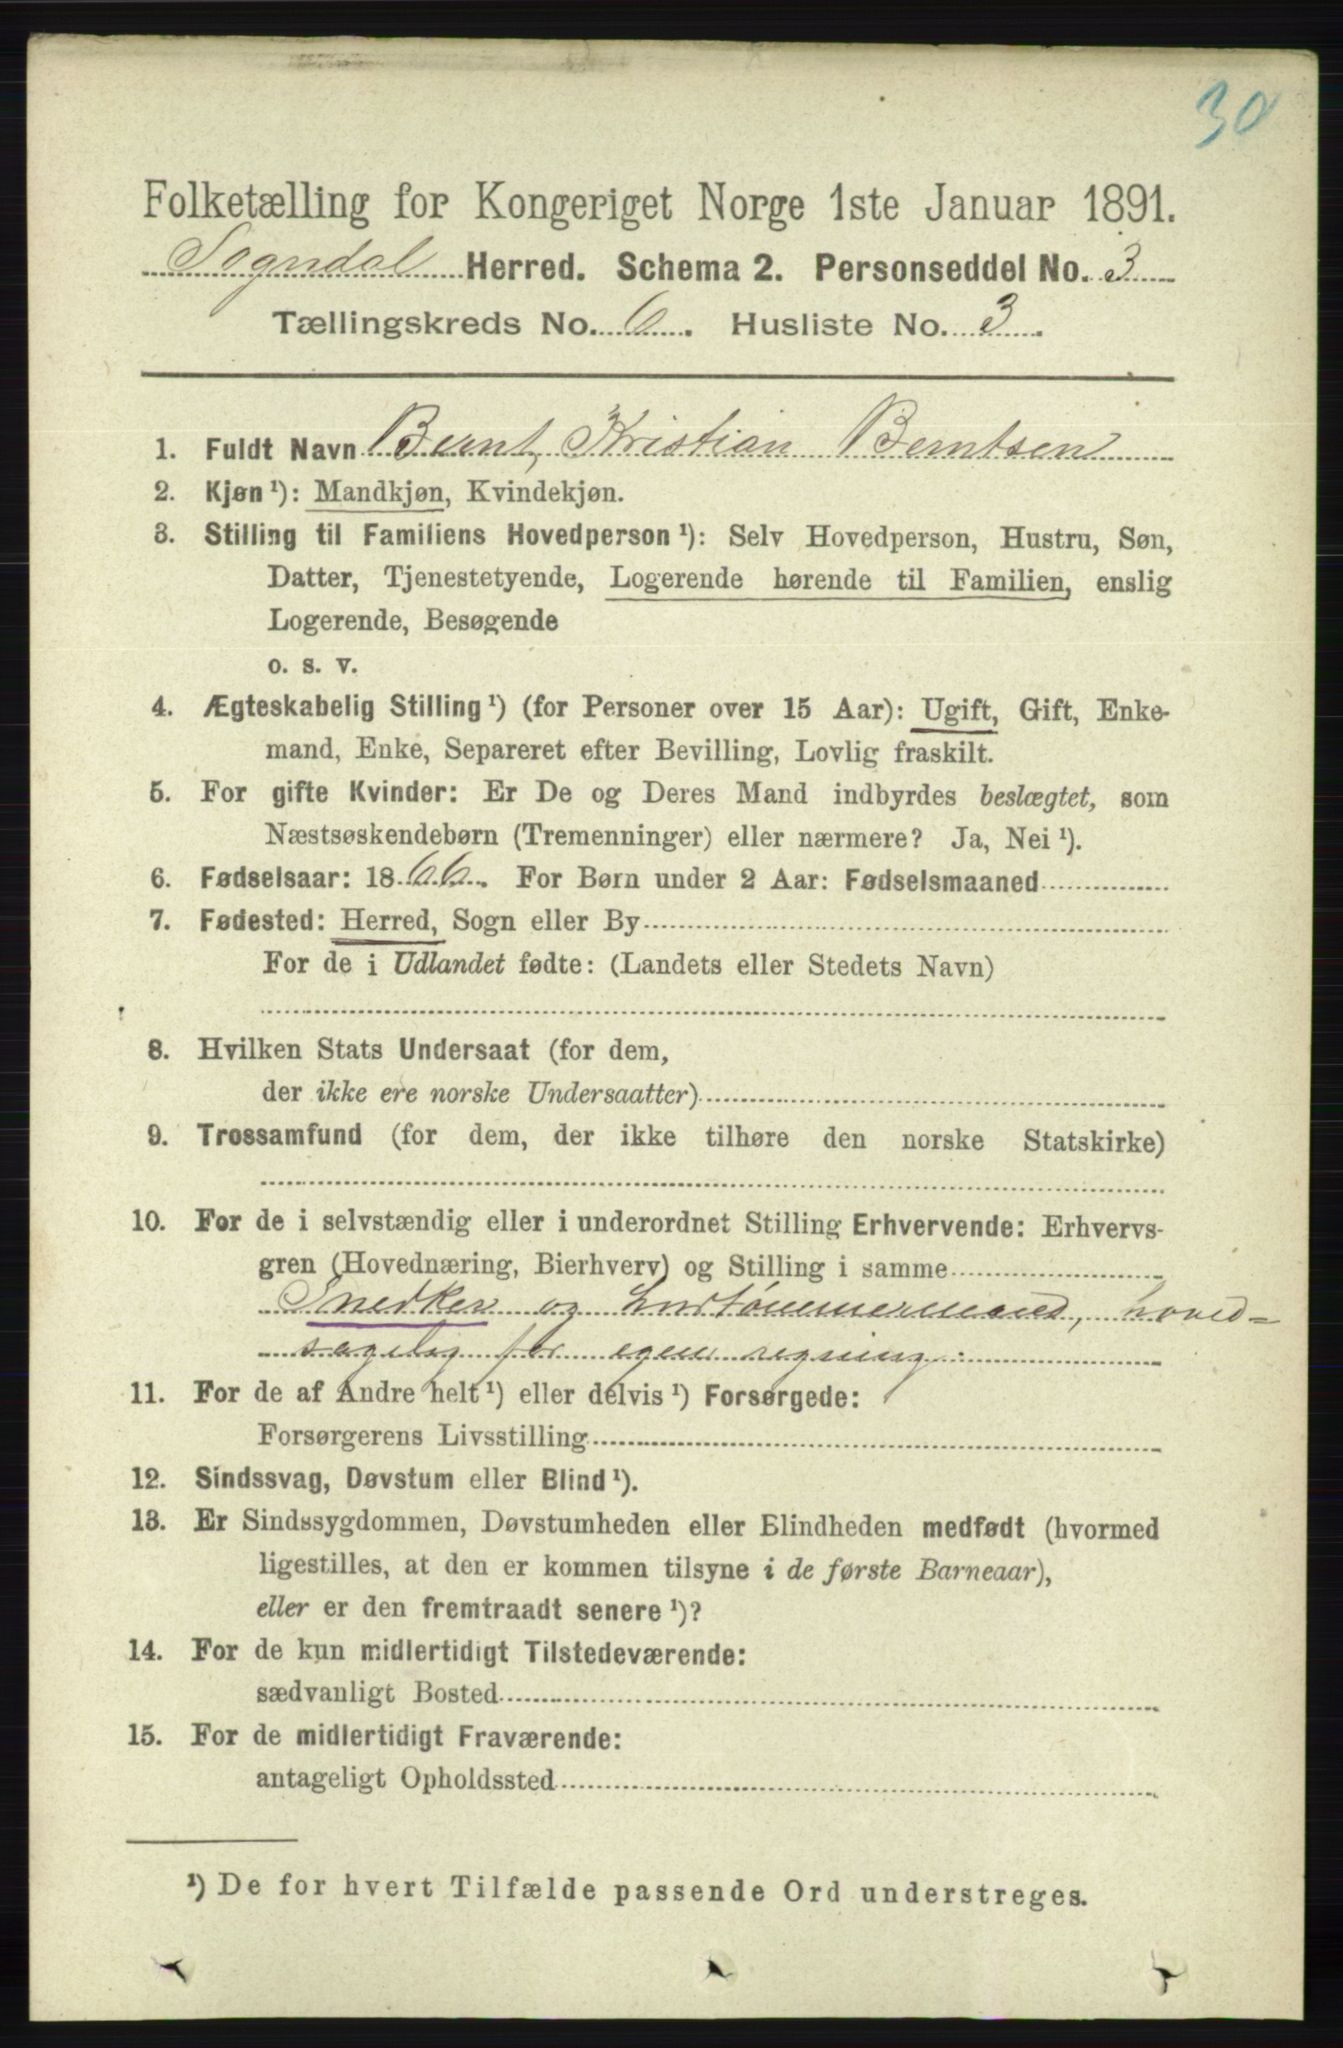 30
Folketælling for Kongeriget Norge 1ste Januar 1891.
Sogndal Herred. Schema 2. Personseddel No. 3
Tællingskreds No. 6. Husliste No. 3.
1. Fuldt Navn Bernt, Kristian Berntsen
2. Kjøn ¹): Mandkjøn, Kvindekjøn.
3. Stilling til Familiens Hovedperson ¹): Selv Hovedperson, Hustru, Søn,
Datter, Tjenestetyende, Logerende hørende til Familien, enslig
Logerende, Besøgende
o. s. v.
4. Ægteskabelig Stilling ¹) (for Personer over 15 Aar): Ugift, Gift, Enke-
mand, Enke, Separeret efter Bevilling, Lovlig fraskilt.
5. For gifte Kvinder: Er De og Deres Mand indbyrdes beslægtet, som
Næstsøskendebørn (Tremenninger) eller nærmere? Ja, Nei ¹).
6. Fødselsaar: 1866. For Børn under 2 Aar: Fødselsmaaned
7. Fødested: Herred, Sogn eller By
For de i Udlandet fødte: (Landets eller Stedets Navn)
8. Hvilken Stats Undersaat (for dem,
der ikke ere norske Undersaatter)
9. Trossamfund (for dem, der ikke tilhøre den norske Statskirke)
10. For de i selvstændig eller i underordnet Stilling Erhvervende: Erhvervs-
gren (Hovednæring, Bierhverv) og Stilling i samme
Snedker og hustømmermand, hoved-
sagelig for egen regning.
11. For de af Andre helt ¹) eller delvis ¹) Forsørgede:
Forsørgerens Livsstilling
12. Sindssvag, Døvstum eller Blind ¹).
13. Er Sindssygdommen, Døvstumheden eller Blindheden medfødt (hvormed
ligestilles, at den er kommen tilsyne i de første Barneaar),
eller er den fremtraadt senere ¹)?
14. For de kun midlertidigt Tilstedeværende:
sædvanligt Bosted
15. For de midlertidigt Fraværende:
antageligt Opholdssted
¹) De for hvert Tilfælde passende Ord understreges.